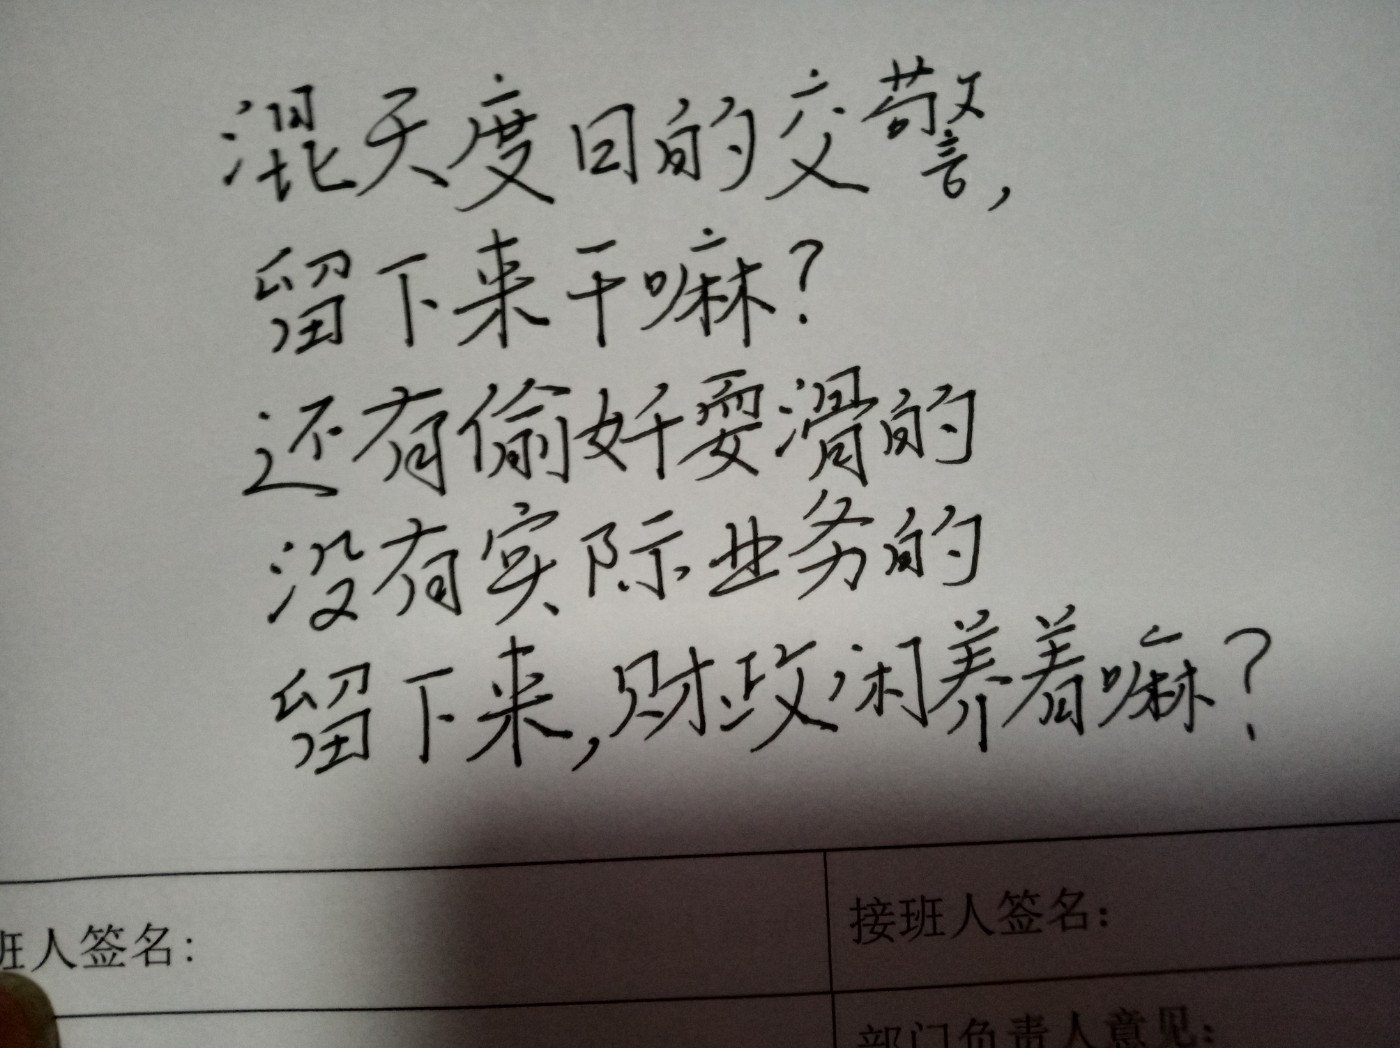 混天度日的交警,
留下来干嘛?
还有偷奸耍滑的
没有实际业务的
留下来,财政闲养着嘛?
班人签名:
接班人签名:
部门负责人意见: